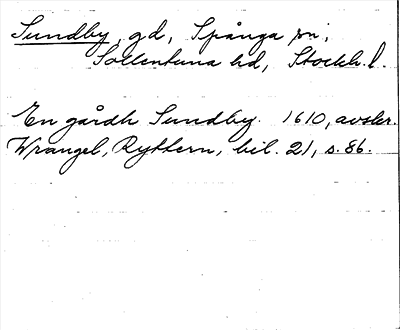 Sundby, gd, Spånga sn,
Sollentuna hd, Stockh. l.
En gårdh Sundby. 1610, avskr.
Wrangel, Ryttern, bil. 21, s. 86.